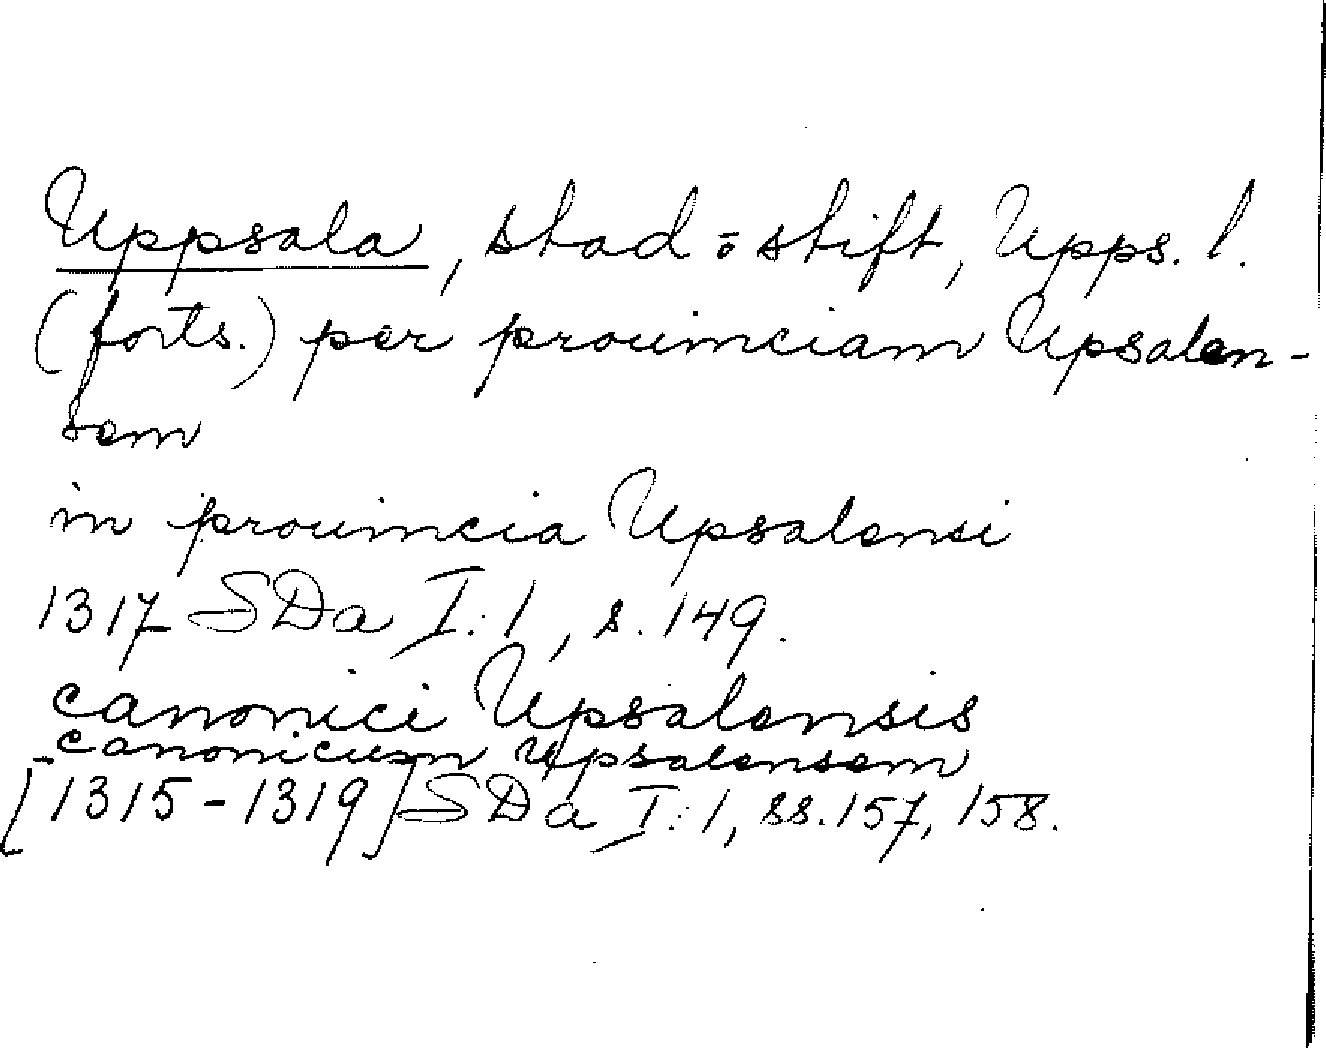 Uppsala, stad o stift, Upps. l.
(forts.) per prouinciam Upsalen-
sem
in prouincia Upsalensi
1317 SDa I:1, s. 149.
canonici Upsalensis
canonicum Upsalensem
[1315-1319] SDa I:1, ss. 157, 158.